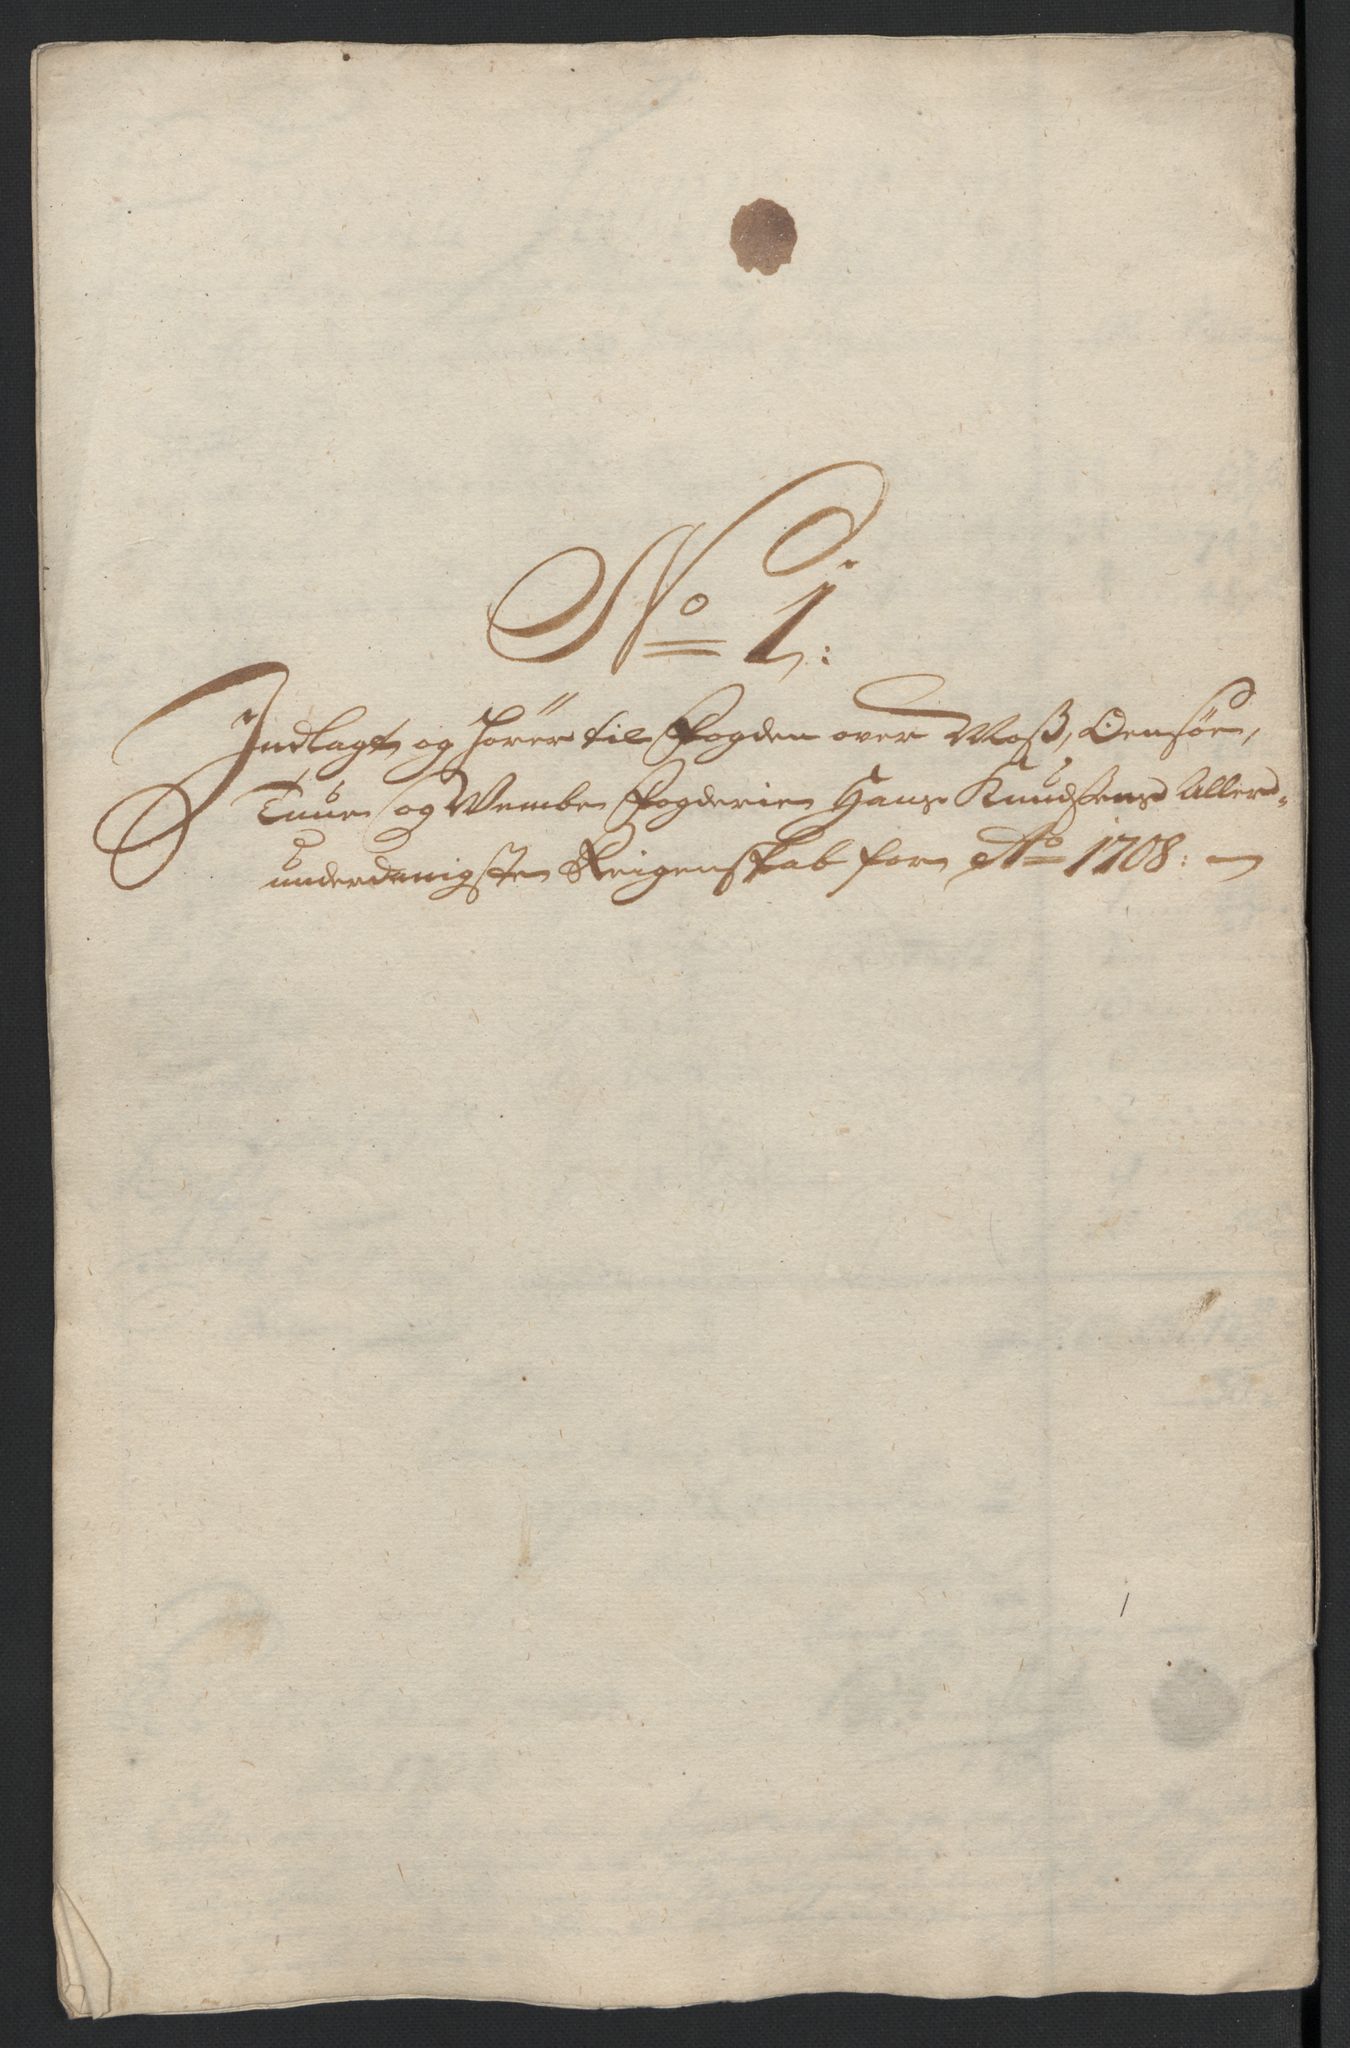 No 1:
Indlagt og hörer til Fogden over Moss, Oensöe,
Tuue og Wembe Fogderier Hans Knudsens Aller=
underdanigste Reigenskab for Ao 1708:
1